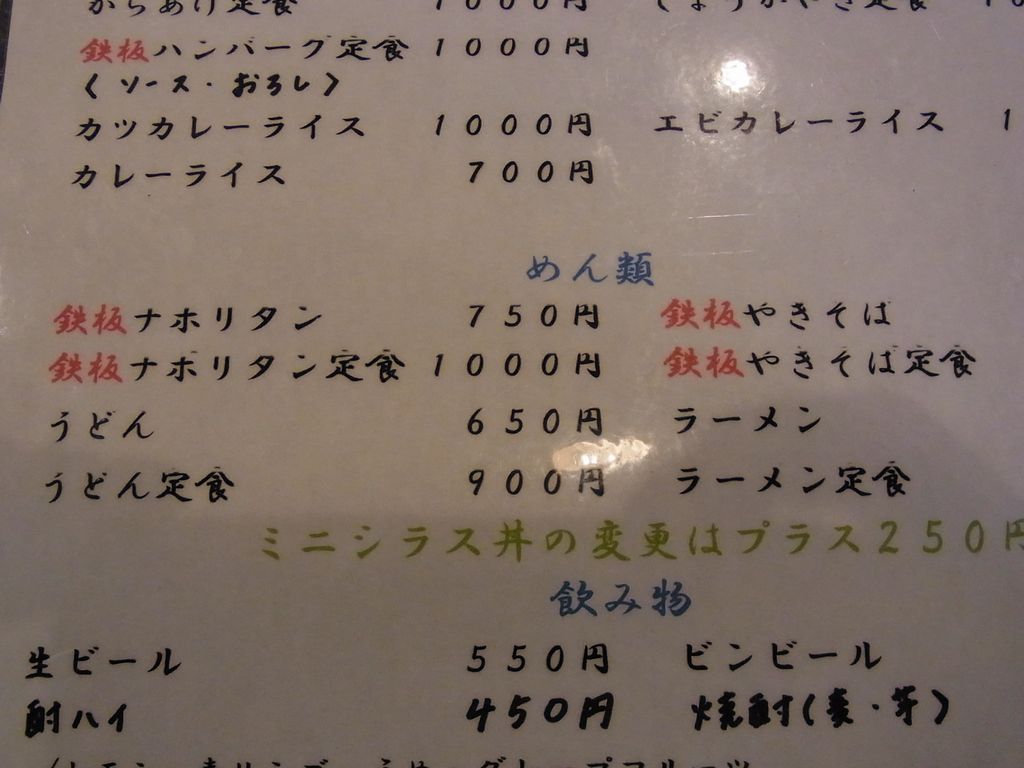 からあげ定食 1000円 しょうがやき定食
鉄板ハンバーグ定食 1000円
(ソース・おろし)
カツカレーライス 1000円 エビカレーライス 1
カレーライス 700円
めん類
鉄板ナポリタン 750円 鉄板やきそば
鉄板ナポリタン定食 1000円 鉄板やきそば定食
うどん 650円 ラーメン
うどん定食 900円 ラーメン定食
ミニシラス丼の変更はプラス250円
飲み物
生ビール 550円 ビンビール
酎ハイ 450円 焼酎(麦・芋)